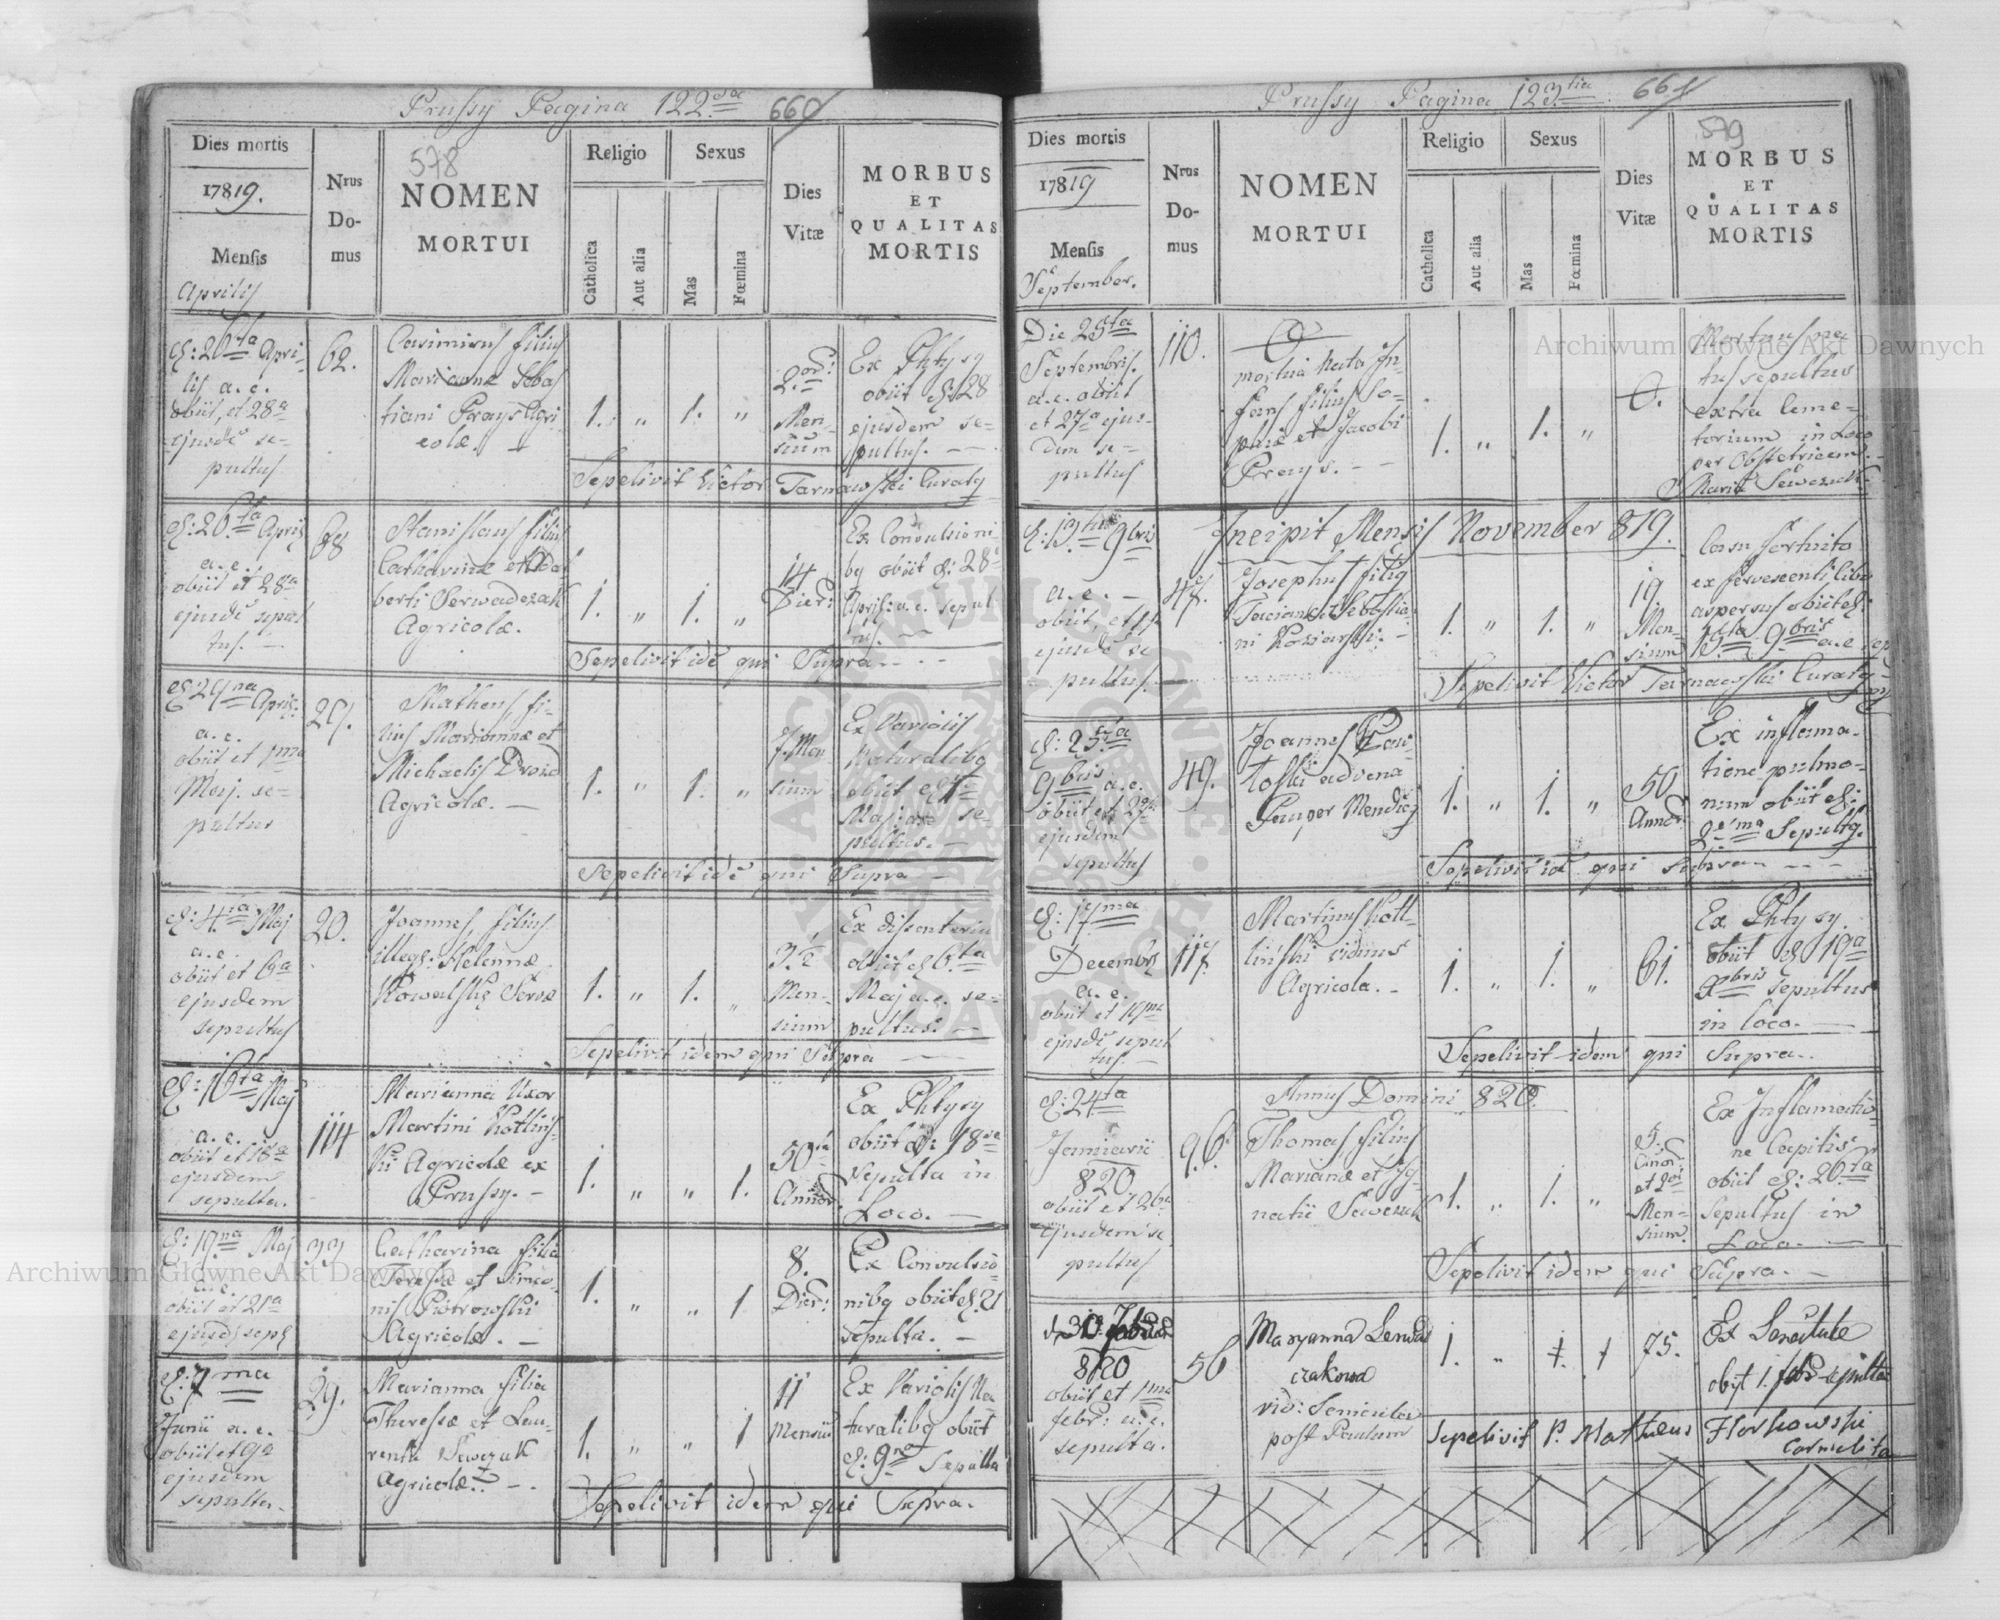 Prussy Pagina 122da 660
Dies mortis
17819.
Mensis
Aprilis
Nrus
Do-
mus
578
NOMEN
MORTUI
Religio
Catholica
Aut alia
Sexus
Mas
Fœmina
Dies
Vitæ
MORBUS
ET
QUALITAS
MORTIS
d: 26ta Apri-
lis a. c.
obiit, et 28a
ejusdē se-
pultus
62.
Casimirus filius
Mariannæ Sebas
tiani Prays Agri
colæ.
1. " 1. "
2.
Men-
sium
Ex Phtysy
obiit d: 28
ejusdem se-
pultus.
Sepelivit Victor Tarnawski Curatq
d: 26ta April
a. c.
obiit et 28a
ejusdē sepul
tus.
68
Stanislaus filius
Catharinæ et Adal
berti Serwadczak
Agricolæ.
1. " 1. "
14
Dier:
Ex Convulsioni
bq obiit d: 28
April: a. c. sepul-
tus.
Sepelivit idē qui Supra
d 29na April:
a. c.
obiit et 1ma
Maj. se-
pultus
29.
Matheus fi-
lius Mariannæ et
Michaelis Drozd
Agricolæ.
1. " 1. "
7. Men
sium
Ex Variolis
Naturalibq
obiit et 1ma
Maj: a. c. se-
pultus.
Sepelivit idē qui Supra
d: 4ta Maj
a. c.
obiit et 6a
ejusdem
sepultus
20.
Joannes, filius
illeg: Helennæ
Kowalski Servæ
1. " 1. "
3. ½
Men-
sium
Ex dissenteria
obiit d 6ta
Maj a. c. se-
pultus.
Sepelivit idem qui Supra
d: 16ta Maj
a. c.
obiit et 18a
ejusdem
sepulta.
114
Marianna Uxor
Martini Kotlins-
ki Agricolæ ex
Prussy.
1. " " 1.
50
Annor.
Ex Phtysy
obiit d: 18
Sepulta in
Loco.
d: 19na Maj
a. c.
obiit et 21a
ejusd: sep
33
Catharina filia
Teresæ et Simeo-
nis Piotrowski
Agricolæ.
1. " " 1
8.
Dier:
Ex Convulsio-
nibq obiit d. 21
Sepulta.
d: 7ma
Junii a. c.
obiit et 9a
ejusdem
sepulta.
29.
Marianna filia
Theresæ et Lau-
rentii Sewczuk
Agricolæ
1. " " 1
11
Mensiū
Ex Variolis Na-
turalibq obiit
d: 9na Sepulta
Sepelivit idem qui Supra.
Prussy Pagina 123tia 661
Dies mortis
17819
Mensis
September.
Nrus
Do-
mus
NOMEN
MORTUI
Religio
Catholica
Aut alia
Sexus
Mas
Fœmina
Dies
Vitæ
579
MORBUS
ET
QUALITAS
MORTIS
Archiwum Główne Akt Dawnych
Die 25ta
Septembris.
a. c. obiit
et 27a ejus-
dem se-
pultus
110.
O
mortua Nata In-
fans filius So-
phiæ et Jacobi
Prays.
1. " 1. "
0.
Mortuus na
tus sepultus
extra Ceme-
terium in Loco
per Obstetricem
Maria Sewczuk
Incipit Mensis November 819.
d: 13tia 9bris
a. c.
obiit, et
ejusdē se
pultus.
47.
Josephus filiq
Tacianæ Sebastia
ni Koziarski.
1. " 1. "
19
Men-
sium
Casu fortuito
ex fervescenti cibo
aspersus obiit d:
15ta 9bris a. c. sep
Sepelivit Victor Tarnawski Curatq
d: 25ta
9bris a. c.
obiit et 27a
ejusdem
sepultus
49.
Joannes
toski advena
Pauper Mendicq
1. " 1. "
50
Annor.
Ex inflama-
tione pulmo-
num obiit d:
Sepultq.
Sepelivit id qui Supra
d: 17ma
Decembr
a. c.
obiit et 19na
ejusdē sepul
tus.
117.
Martinus Kotl-
liński viduus
Agricola.
1. " 1. "
61.
Ex Phtysy
obiit d 19a
Xbris Sepultus
in Loco.
Sepelivit idem qui Supra.
Annus Domini 820.
d: 24ta
Januarii
820
obiit et 26a
ejusdem se
pultus
96.
Thomas, filius
Mariannæ et Ig-
natii Sewczuk
1. " 1. "
5.
Annor.
et 2or
Men-
sium.
Ex Inflamatio-
ne Capitis
obiit d: 26ta
Sepultus in
Loco.
Sepelivit idem qui Supra.
30
820
obiit et 1ma
febr: a. c.
sepulta.
56
Maryanna Senwad
czakowa
vid: Semicula
post Paulum
1. " 1. 1
75.
Ex Senectute
obyt 1. febr sepulta
Sepelivit P. Matheus Horkowski
Carmelita
Archiwum Główne Akt Dawnych
ARCHIWUM GŁÓWNE AKT DAWNYCH